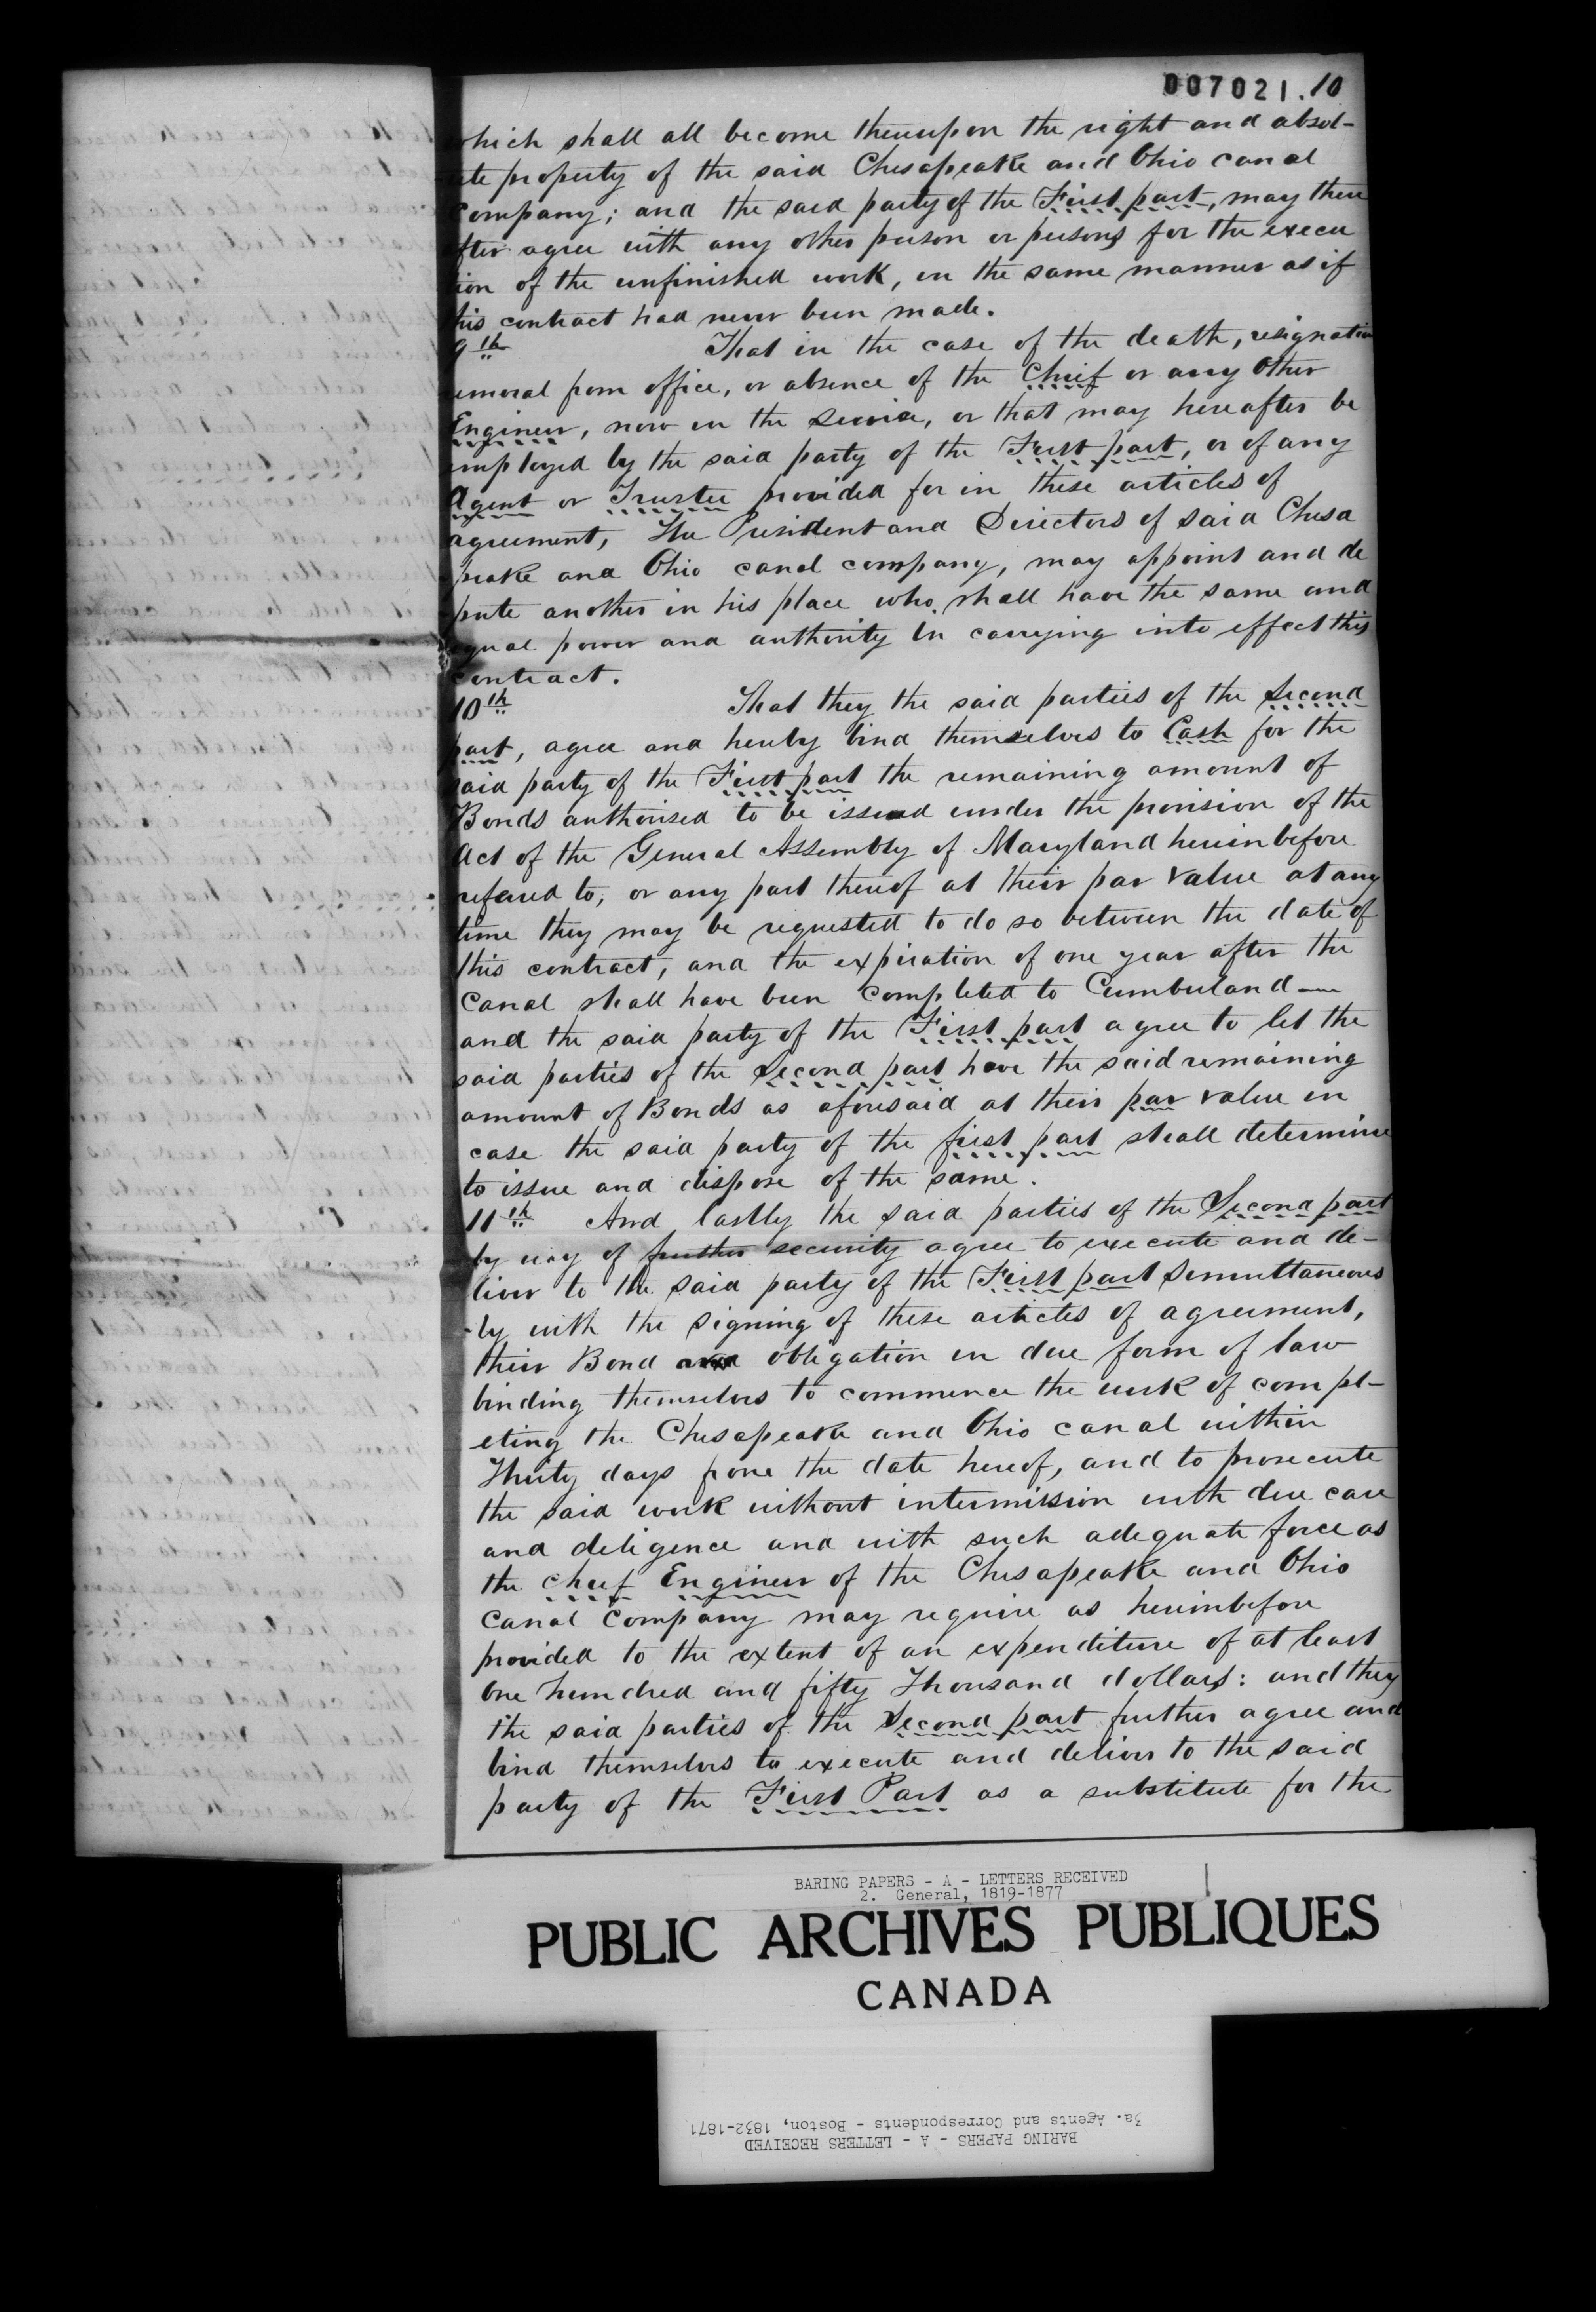 007021.10
which shall all become thereupon the right and absol-
ute property of the said Chesapeake and Ohio canal
company; and the said party of the First part, may there
after agree with any other person or persons for the execu
tion of the unfinished work, in the same manner as if
this contract had never been made.
9th That in the case of the death, resignation
removal from office, or absence of the Chief or any Other
Engineer, now in the Service, or that may hereafter be
employed by the said party of the First part, or of any
Agent or Trustee provided for in these articles of
agreement, The President and Directors of said Chesa
peake and Ohio canal company, may appoint and de
pute another in his place who shall have the same and
equal power and authority in carrying into effect this
contract.
10th That they the said parties of the Second
part, agree and hereby bind themselves to Cash for the
said party of the First part the remaining amount of
Bonds authorised to be issued under the provision of the
Act of the General Assembly of Maryland hereinbefore
refered to, or any part thereof at their par value at any
time they may be requested to do so between the date of
this contract, and the expiration of one year after the
Canal shall have been completed to Cumberland—
and the said party of the First part agree to let the
said parties of the Second part have the said remaining
amount of Bonds as aforesaid at their par value in
case the said party of the first part shall determine
to issue and dispose of the same.
11th And lastly the said parties of the Second part
by way of further security agree to execute and de-
liver to the said party of the First part Simultaneous
-ly with the signing of these articles of agreement,
their Bond obligation in due form of law
binding themselves to commence the work of compl-
eting the Chesapeake and Ohio canal within
Thirty days from the date hereof, and to prosecute
the said work without intermission with due care
and deligence and with such adequate force as
the chief Engineer of the Chesapeake and Ohio
Canal Company may require as hereinbefore
provided to the extent of an expenditure of at least
One hundred and fifty Thousand dollars: and they
the said parties of the Second part further agree and
bind themselves to execute and deliver to the said
party of the First Part as a substitute for the
BARING PAPERS - A - LETTERS RECEIVED
2. General, 1819-1877
PUBLIC ARCHIVES PUBLIQUES
CANADA
BARING PAPERS - A - LETTERS RECEIVED
3a. Agents and Correspondents - Boston, 1832-1871